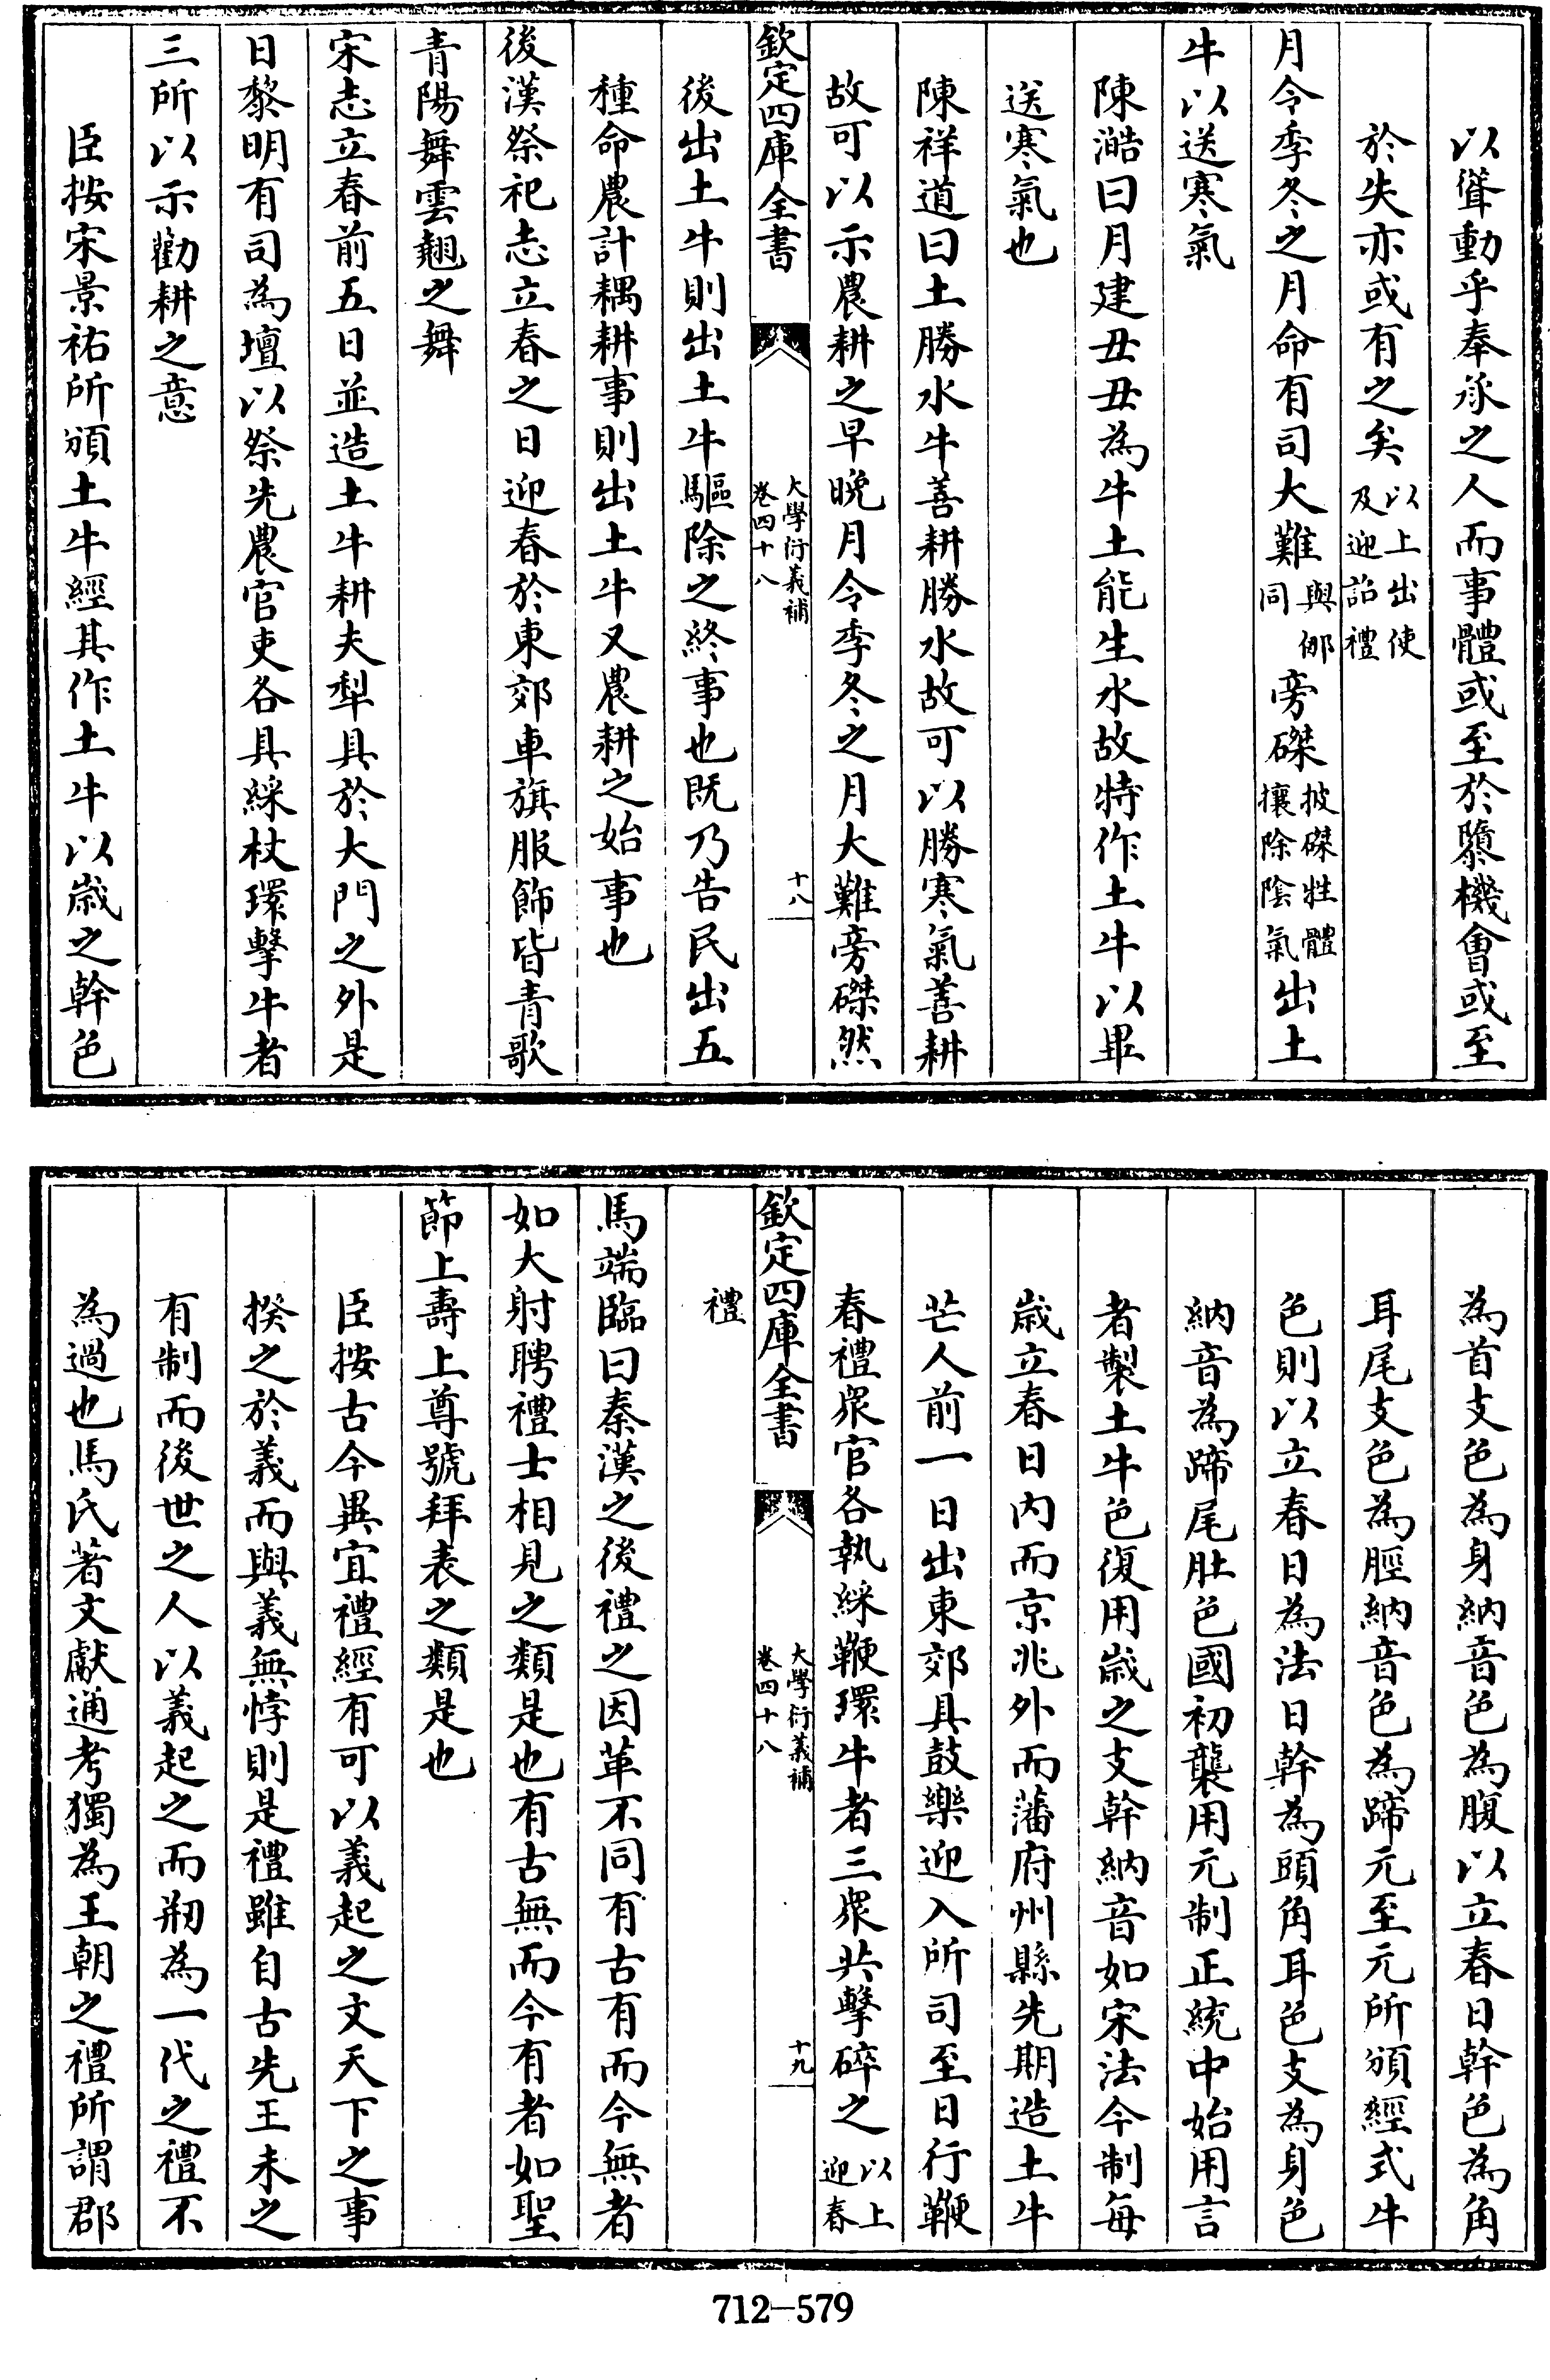 以聳動乎奉承之人而事體或至於隳機會或至
於失亦或有之矣以上出使及迎詔禮
月令季冬之月命有司大難與儺同旁磔披磔牲體攘除陰氣出土
牛以送寒氣
陳澔曰月建丑丑為牛土能生水故特作土牛以畢
送寒氣也
陳祥道曰土勝水牛善耕勝水故可以勝寒氣善耕
故可以示農耕之早晚月令季冬之月大難旁磔然
欽定四庫全書
大學衍義補
卷四十八
十八
後出土牛則出土牛驅除之終事也既乃告民出五
種命農計耦耕事則出土牛又農耕之始事也
後漢祭祀志立春之日迎春於東郊車旗服飾皆青歌
青陽舞雲翹之舞
宋志立春前五日並造土牛耕夫犁具於大門之外是
日黎明有司為壇以祭先農官吏各具綵杖環擊牛者
三所以示勸耕之意
臣按宋景祐所頒土牛經其作土牛以歲之幹色
為首支色為身納音色為腹以立春日幹色為角
耳尾支色為脛納音色為蹄元至元所頒經式牛
色則以立春日為法日幹為頭角耳色支為身色
納音為蹄尾肚色國初襲用元制正統中始用言
者製土牛色復用歲之支幹納音如宋法今制每
歲立春日內而京兆外而藩府州縣先期造土牛
芒人前一日出東郊具鼓樂迎入所司至日行鞭
春禮衆官各執綵鞭環牛者三衆共擊碎之以上迎春
欽定四庫全書
大學衍義補
卷四十八
十九
禮
馬端臨曰秦漢之後禮之因革不同有古有而今無者
如大射聘禮士相見之類是也有古無而今有者如聖
節上壽上尊號拜表之類是也
臣按古今異宜禮經有可以義起之文天下之事
揆之於義而與義無悖則是禮雖自古先王未之
有制而後世之人以義起之而剏為一代之禮不
為過也馬氏著文獻通考獨為王朝之禮所謂郡
712-579